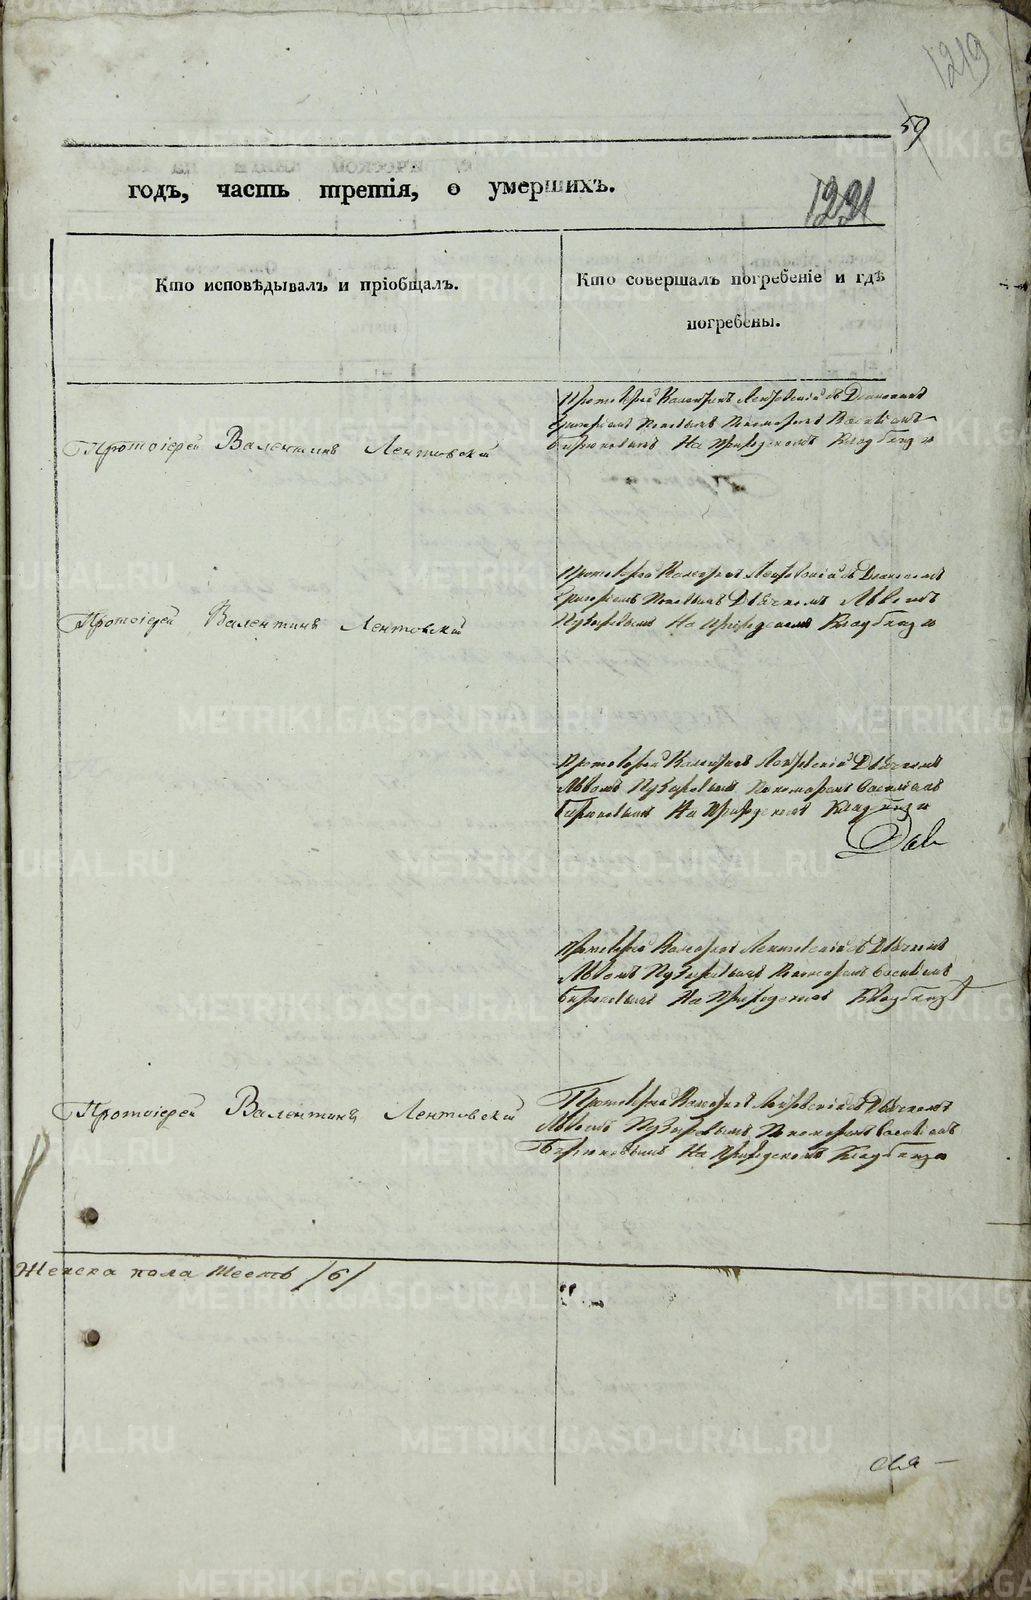 1219
59
годъ, часть третія, о умершихъ.
1221
Кто исповѣдывалъ и пріобщалъ.
Кто совершалъ погребеніе и гдѣ
погребены.
Протоіерей Валентинъ Лентовскій
Протоіерей Валентинъ Лентовскій съ Діакономъ
Григоріемъ Поповымъ Пономаремъ Василіемъ
Бирюковымъ На Приходскомъ Кладбищѣ
Протоіерей Валентинъ Лентовскій
Протоіерей Валентинъ Лентовскій съ Діакономъ
Григоріемъ Поповымъ Дьячкомъ Львомъ
Пузыревымъ На Приходскомъ Кладбищѣ
Протоіерей Валентинъ Лентовскій съ Дьячкомъ
Львомъ Пузыревымъ Пономаремъ Василіемъ
Бирюковымъ На Приходскомъ Кладбищѣ
Протоіерей Валентинъ Лентовскій съ Дьячкомъ
Львомъ Пузыревымъ Пономаремъ Василіемъ
Бирюковымъ На Приходскомъ Кладбищѣ
Протоіерей Валентинъ Лентовскій
Протоіерей Валентинъ Лентовскій съ Дьячкомъ
Львомъ Пузыревымъ Пономаремъ Василіемъ
Бирюковымъ На Приходскомъ Кладбищѣ
Женска пола Шесть /6/
METRIKI.GASO-URAL.RU